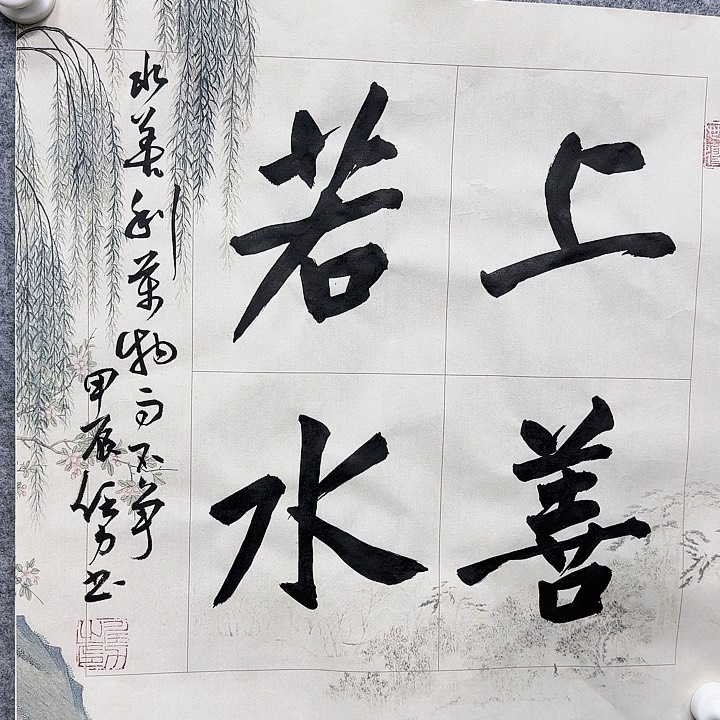 上善
若水
水善利萬物而不争
甲辰书